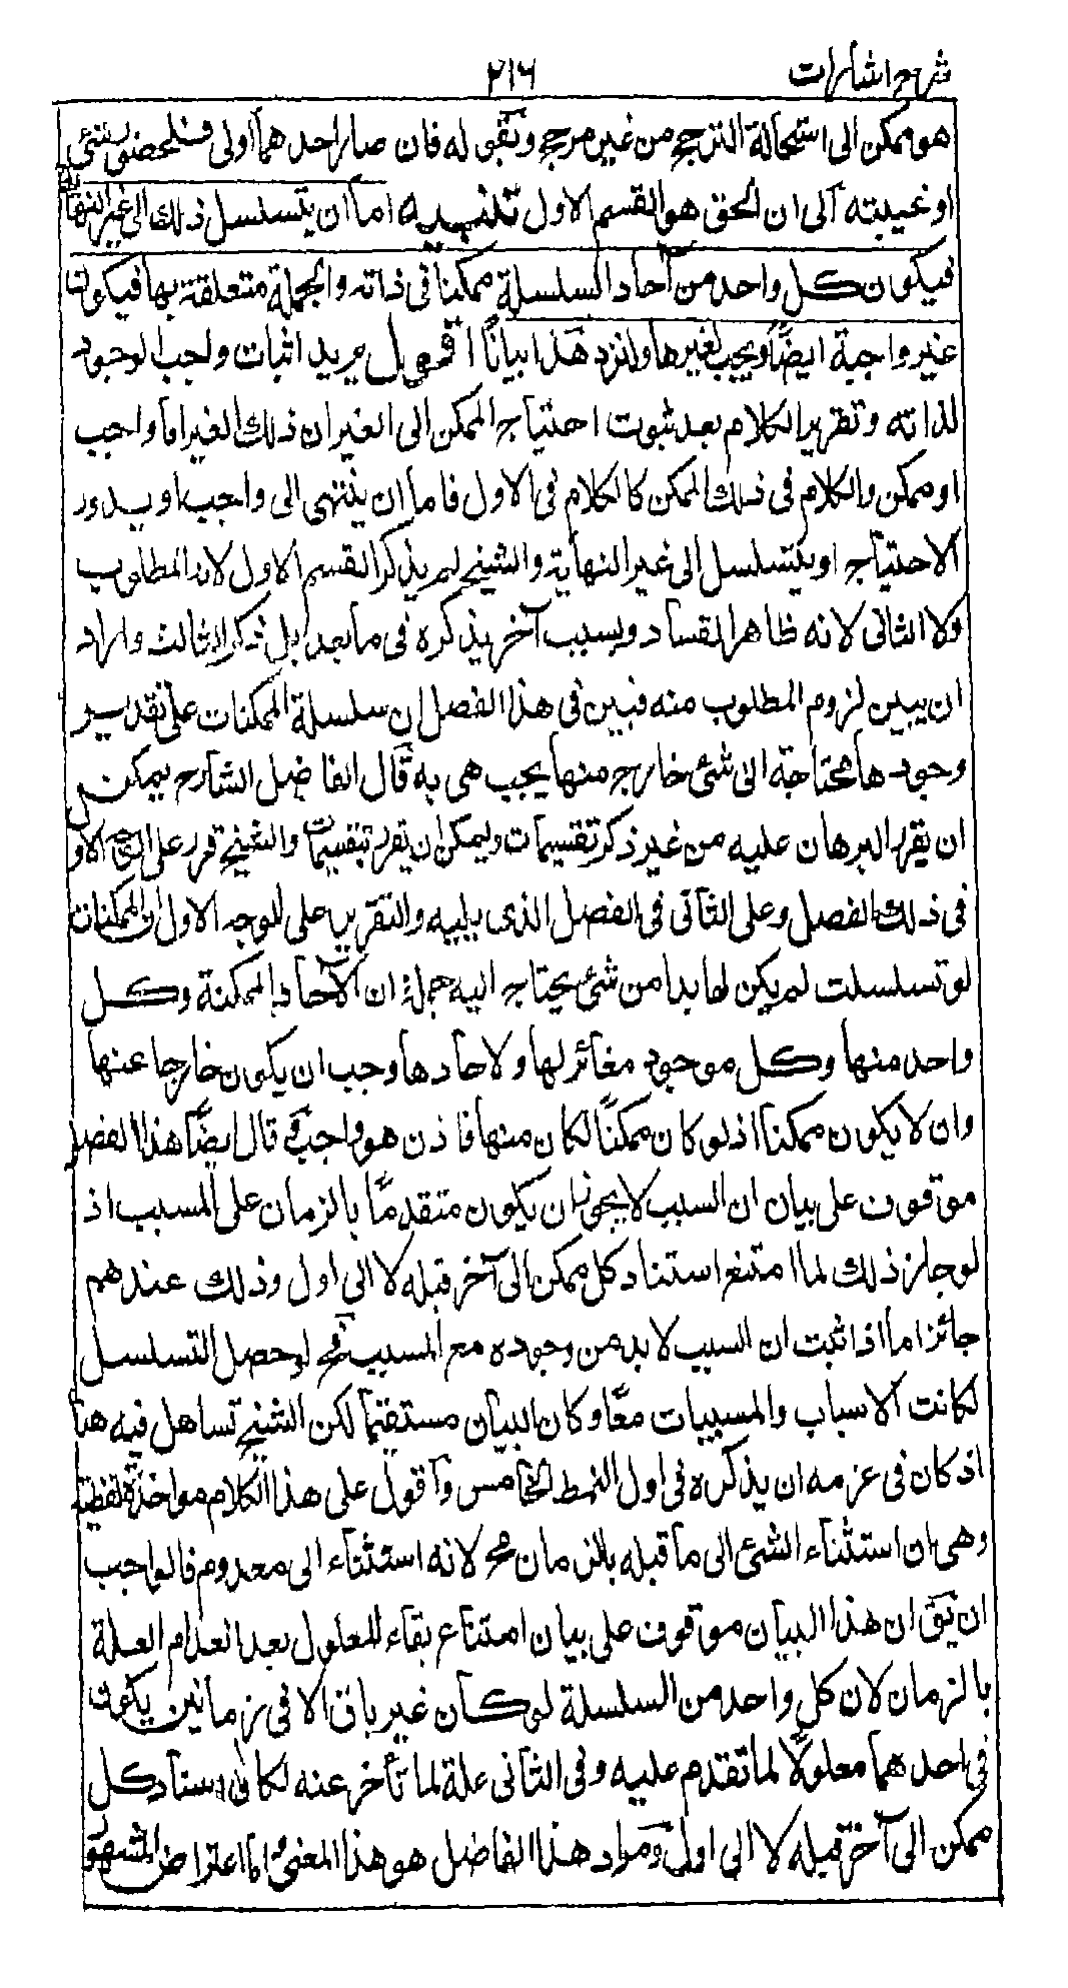 شرح اشارات ٢١٦
هو ممكن الى استحالة الترجح من غير مرجح وبقوله فان صار احدهما اولى فلحضور شئ
او غيبته الى ان الحق هو القسم الاول تنبيه اما ان يتسلسل ذلك الى غير النهاية
فيكون كل واحد من آحاد السلسلة ممكنا فى ذاته والجملة متعلقة بها فيكون
غير واجبة ايضًا ويجب لغيرها ولنزد هذا بيانًا اقول يريد اثبات واجب الوجود
لذاته وتقرير الكلام بعد ثبوت احتياج الممكن الى الغير ان ذلك الغير اما واجب
او ممكن والكلام فى ذلك الممكن كالكلام فى الاول فاما ان ينتهى الى واجب او يدور
الاحتياج او يتسلسل الى غير النهاية والشيخ لم يذكر القسم الاول لانه المطلوب
ولا الثانى لانه ظاهر الفساد وبسبب آخر يذكره فى ما بعد بل ذكر الثالث واراد
ان يبين لزوم المطلوب منه فبين فى هذا الفصل ان سلسلة الممكنات على تقدير
وجودها محتاجة الى شئ خارج منها يجب هى به قال الفاضل الشارح يمكن
ان يقرر البرهان عليه من غير ذكر تقسيمات ويمكن ان يقرر بتقسيمات والشيخ قرر على الوجه الاول
فى ذلك الفصل وعلى الثانى فى الفصل الذى يليه والتقرير على الوجه الاول ان الممكنات
لو تسلسلت لم يكن لها بدا من شئ يحتاج اليه جملة ان الآحاد الممكنة وكل
واحد منها وكل موجود مغائر لها ولاحادها وجب ان يكون خارجا عنها
وان لا يكون ممكنا اذ لو كان ممكنًا لكان منها فاذن هو واجب قال ايضًا هذا الفصل
موقوف على بيان ان السبب لا يجوز ان يكون متقدمًا بالزمان على المسبب اذ
لو جاز ذلك لما امتنع استناد كل ممكن الى آخر قبله لا الى اول وذلك عندهم
جائز اما اذا ثبت ان السبب لا بد من وجوده مع المسبب فح لو حصل التسلسل
لكانت الاسباب والمسببات معًا وكان البيان مستقيما لكن الشيخ تساهل فيه هنا
اذ كان فى عزمه ان يذكره فى اول النمط الخامس واقول على هذا الكلام مواخذة لفظية
وهى ان استثناء الشئ الى ما قبله بالزمان مح لانه استثناء الى معدوم فالواجب
ان يق ان هذا البيان موقوف على بيان امتناع بقاء المعلول بعد انعدام العلة
بالزمان لان كل واحد من السلسلة لو كان غير باق الا فى زمانين يكون
فى احدهما معلولًا لما تقدم عليه وفى الثانى علة لما تأخر عنه لكان استناد كل
ممكن الى آخر قبله لا الى اول ومراد هذا الفاضل هو هذا المعنى واما اعتراض المشهور